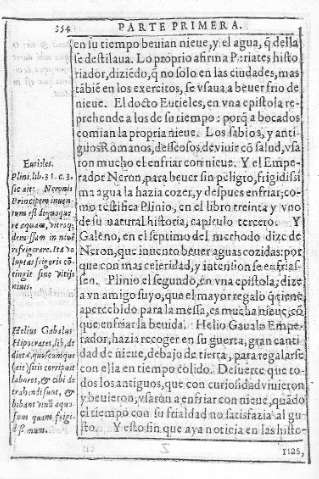 354
PARTE PRIMERA.
en su tiempo beuian nieue, y el agua, q̃ della
se destilaua. Lo proprio afirma Pariates histo
riador, diziẽdo, q̃ no solo en las ciudades, mas
tãbiẽ en los exercitos, se vsaua, a beuer frio de
nieue. El docto Eucles, en vna epistola re-
prehende a los de su tiempo: porq̃ a bocados
comian la propria nieue. Los sabios, y anti-
guos Romanos, desseosos, de viuir cõ salud, vsa
ron mucho el enfriar con nieue. Y el Empe-
rador Neron, para beuer sin peligro, frigidissi
ma agua la hazia cozer, y despues enfriar, co-
mo testifica Plinio, en el libro treinta y vno
de su natural historia, capitulo tercero. Y
Galeno, en el septimo del methodo dize de
Neron, que inuento beuer aguas cozidas: por
que con mas celeridad, y intension se enfrias-
sen. Plinio el segundo, en vna epistola, dize
a vn amigo suyo, que el mayor regalo q̃ tiene
apercebido para la messa, es mucha nieue, cõ
que enfriar la beuida. Helio Gaualo Empe-
rador, hazia recoger en su guerta, gran canti
dad de nieue, debajo de tierra, para regalarse
con ella en tiempo calido. De suerte que to-
dos los antiguos, que con curiosidad viuieron
y beuieron, vsaron a enfriar con nieue, quãdo
el tiempo con su frialdad no satisfazia al gu-
sto. Y esto sin que aya noticia en las histo-
rias,
Eucles.
Plini. lib. 31. c. 3.
sic ait: Neronis
Principem inuen
tum est decoquc-
re aquam, vitroq;
demissam in niue
refrigerare. Ita vo
luptas frigoris cõ
tingit sine vitijs
niuis.
Helius Gabalus
Hipocrates, lib, de
diet. a. quicumque
cibi
labores, & cibi de
trahendi sunt, &
bibant vinũ aquo
sum quam frigi-
dissimum.